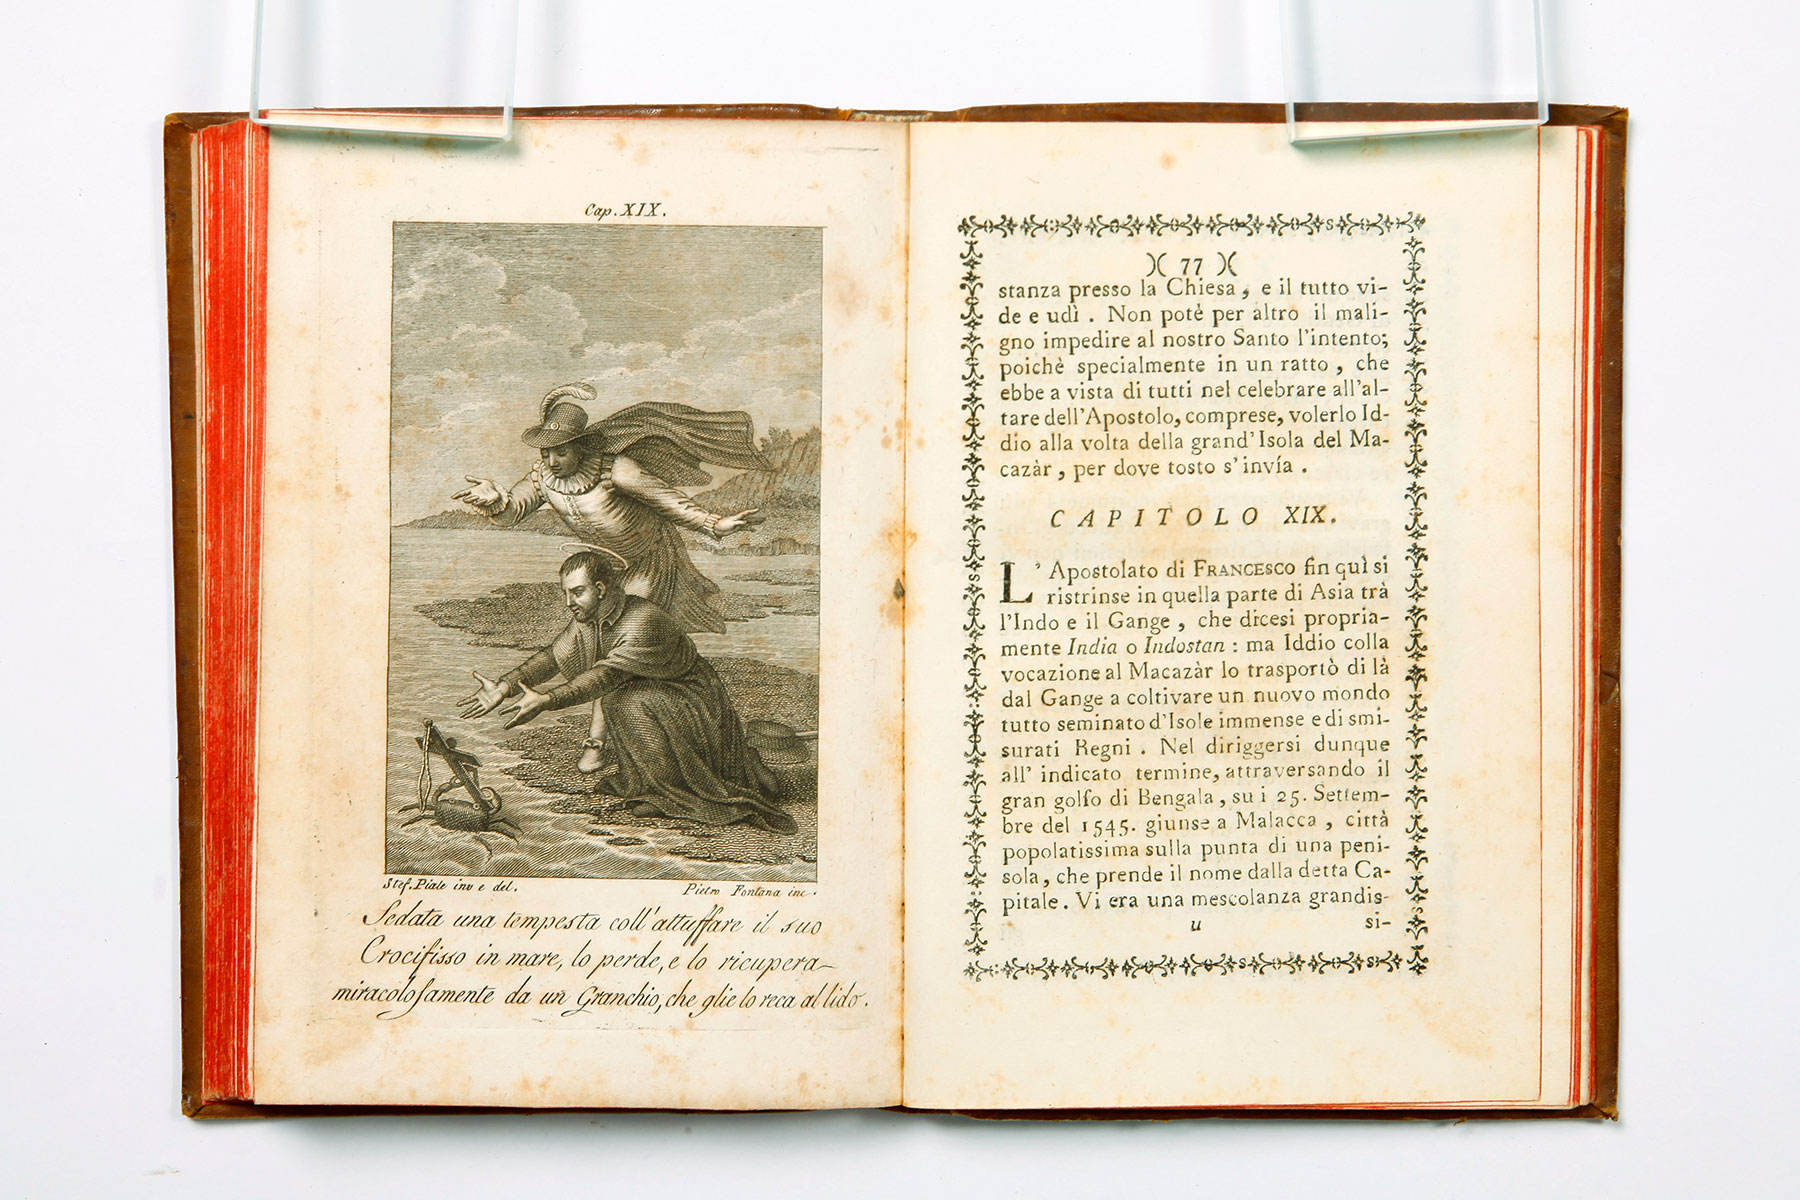 Cap. XIX.
Stef. Piale inv e del.
Pietro Fontana inc.
Sedata una tempesta coll'attuffare il suo
Crocifisso in mare, lo perde, e lo ricupera
miracolosamente da un Granchio, che glie lo reca al lido.
)( 77 )(
stanza presso la Chiesa, e il tutto vi-
de e udì. Non potè per altro il mali-
gno impedire al nostro Santo l'intento;
poichè specialmente in un ratto, che
ebbe a vista di tutti nel celebrare all'al-
tare dell'Apostolo, comprese, volerlo Id-
dio alla volta della grand'Isola del Ma-
cazàr, per dove tosto s'invía.
CAPITOLO XIX.
L'Apostolato di FRANCESCO fin quì si
ristrinse in quella parte di Asia trà
l'Indo e il Gange, che dicesi propria-
mente India o Indostan: ma Iddio colla
vocazione al Macazàr lo trasportò di là
dal Gange a coltivare un nuovo mondo
tutto seminato d'Isole immense e di smi-
surati Regni. Nel diriggersi dunque
all' indicato termine, attraversando il
gran golfo di Bengala, su i 25. Settem-
bre del 1545. giunse a Malacca, città
popolatissima sulla punta di una peni-
sola, che prende il nome dalla detta Ca-
pitale. Vi era una mescolanza grandis-
u si-